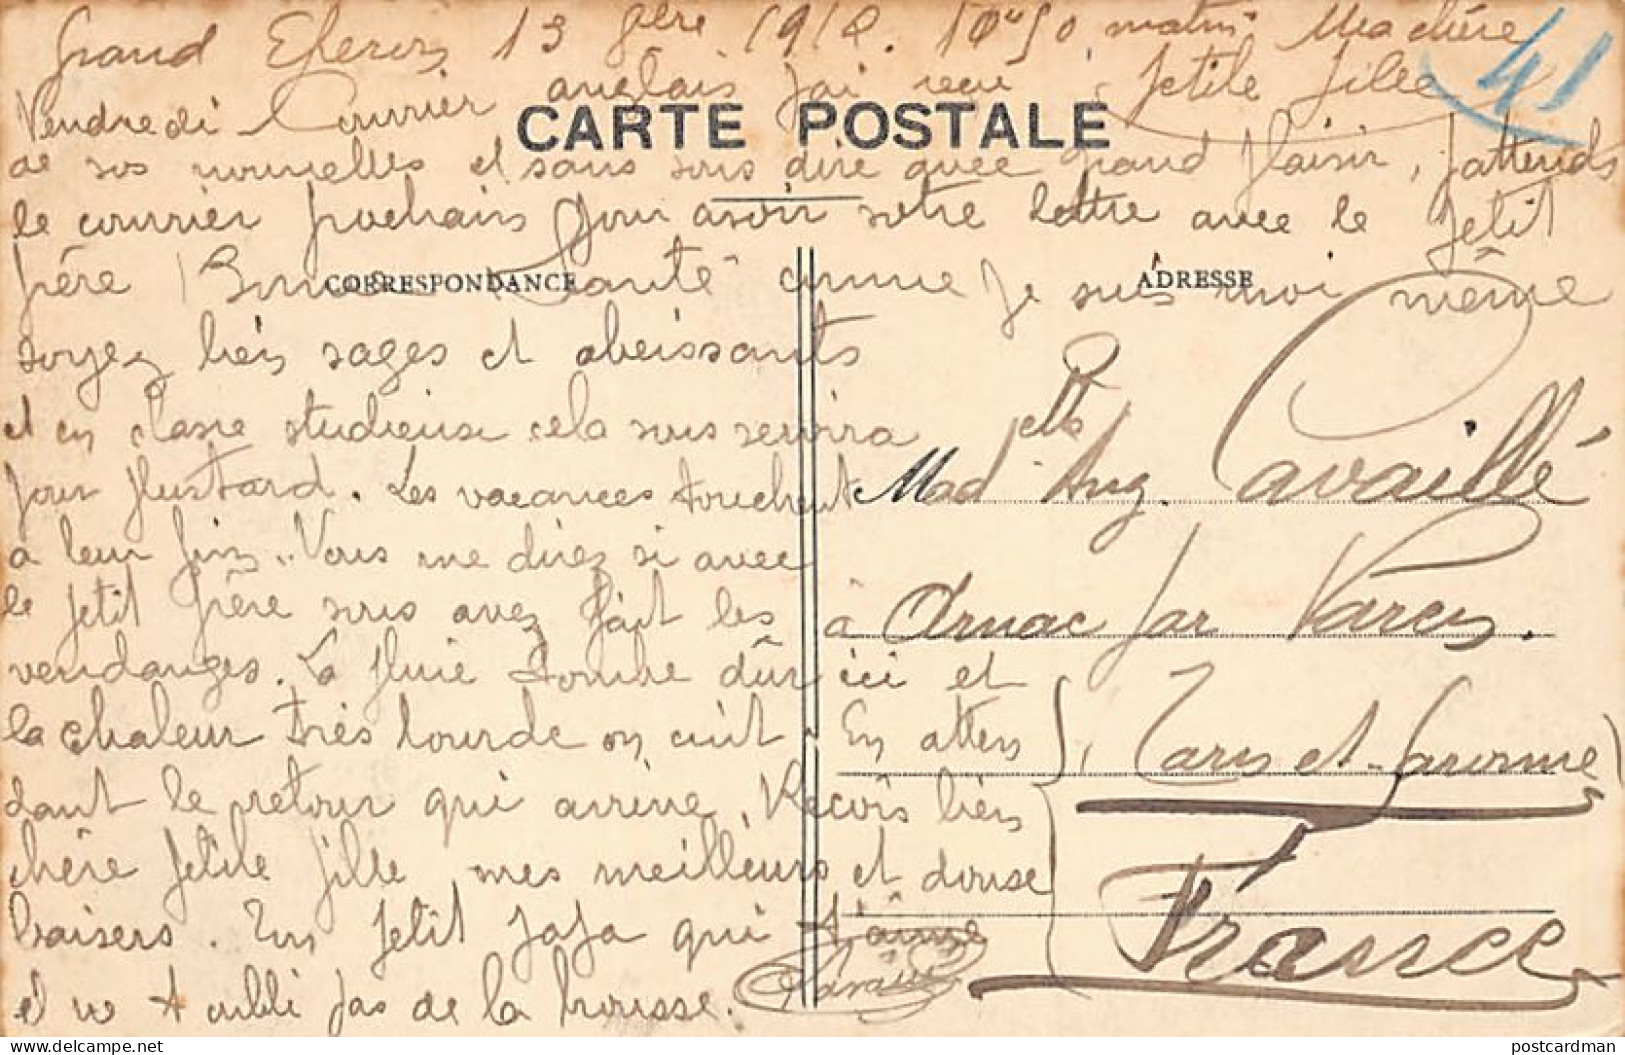 Grand 13 9bre 1912. 10h50 matin Ma chère
petite fille
41
Vendredi Courrier anglais j'ai reçu
CARTE POSTALE
de vos nouvelles et sans vous dire avec grand plaisir, j'attends
le courrier prochain pour avoir votre lettre avec le petit
frère Bonne Santé comme je suis moi même
CORRESPONDANCE
ADRESSE
soyez bien sages et obeissants
et en classe studieuse cela vous servira
pour plus tard. Les vacances touchent
à leur fin.. Vous me direz si avec
le petit frère vous avez fait les
vendanges. La pluie tombe dûr ici et
la chaleur très lourde on cuit. En atten
dant le retour qui arrive, Reçois bien
chère petite fille, mes meilleurs et douse
baisers. Ton petit papa qui t'aime
et ne t'oubli pas de la brousse.
Cavaillé
petite
Mad Ang. Cavaillé
à Arnac par Varen.
Tarn et Garonne
France
postcardman
www.delcampe.net